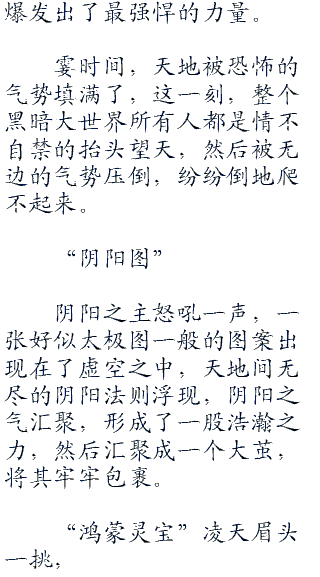 爆发出了最强悍的力量。
霎时间，天地被恐怖的
气势填满了，这一刻，整个
黑暗大世界所有人都是情不
自禁的抬头望天，然后被无
边的气势压倒，纷纷倒地爬
不起来。
“阴阳图”
阴阳之主怒吼一声，一
张好似太极图一般的图案出
现在了虚空之中，天地间无
尽的阴阳法则浮现，阴阳之
气汇聚，形成了一股浩瀚之
力，然后汇聚成一个大茧，
将其牢牢包裹。
“鸿蒙灵宝”凌天眉头
一挑，